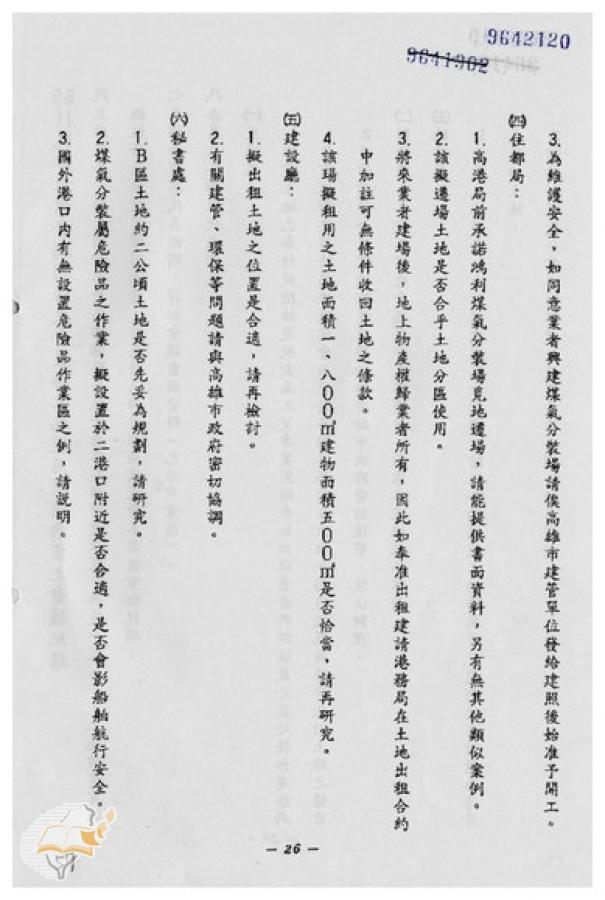 9642120
9641902
3.為維護安全，如同意業者興建煤氣分裝場請俟高雄市建管單位發給建照後始准予開工。
㈣住都局：
1.高港局前承諾鴻利煤氣分裝場覓地遷場，請能提供書面資料，另有無其他類似案例。
2.該擬遷場土地是否合乎土地分區使用。
3.將來業者建場後，地上物產權歸業者所有，因此如奉准出租建請港務局在土地出租合約
中加註可無條件收回土地之條款。
4.該場擬租用之土地面積一、八００㎡建物面積五００㎡是否恰當，請再研究。
㈤建設廳：
1.擬出租土地之位置是合適，請再檢討。
2.有關建管、環保等問題請與高雄市政府密切協調。
㈥秘書處：
1.B區土地約二公頃土地是否先妥為規劃，請研究。
2.煤氣分裝屬危險品之作業，擬設置於二港口附近是否合適，是否會影船舶航行安全。
3.國外港口內有無設置危險品作業區之例，請說明。
— 26 —